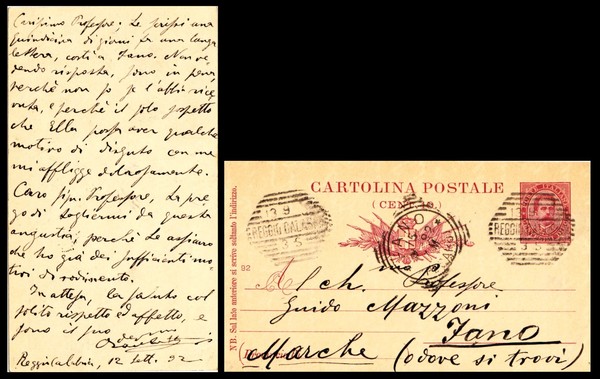 Carissimo Professore; Le scrissi una
quindicina di giorni fa una lunga
lettera, costì a Fano. Non ve-
dendo risposta, sono in pena,
perchè non so se l'abbia rice-
vuta, e perchè il solo sospetto
che Ella possa aver qualche
motivo di disgusto con me
mi affligge
Caro Sig. Professore, La pre-
go di togliermi da questa
angustia; perchè Le assicuro
che ho già dei sufficienti mo-
tivi di
In attesa, La saluto col
solito rispetto ed affetto, e
sono il suo
Reggio Calabria, 12 Sett. 92
CARTOLINA POSTALE
(CENT. 10.)
13 9
REGGIO CALABRIA
3 S
FANO
92
REGGIO CALABRIA
92
N B. Sul lato anteriore si scrive soltanto l'indirizzo.
Al ch. mo Professore
Guido Mazzoni
Fano
(Marche) (o dove si trovi)